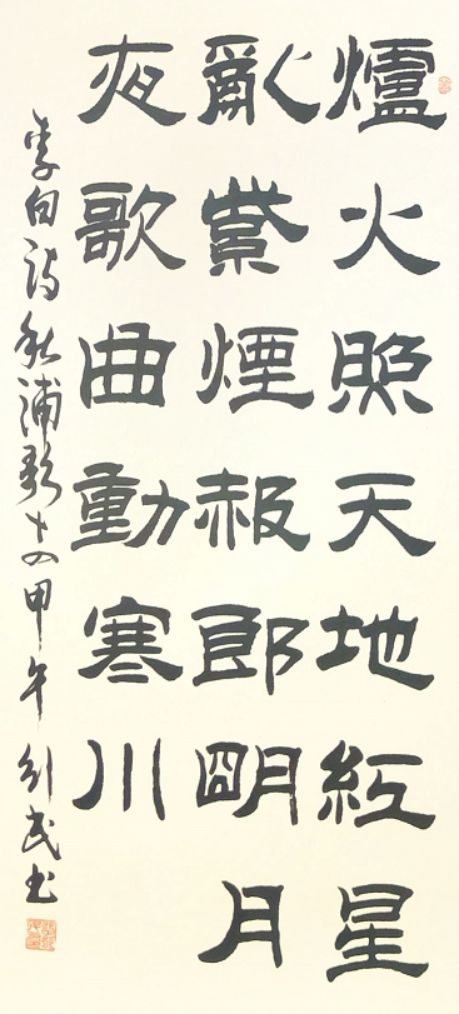 爐火照天地紅星
亂紫煙赧郎明月
夜歌曲動寒川
李白诗秋浦歌十四甲午书